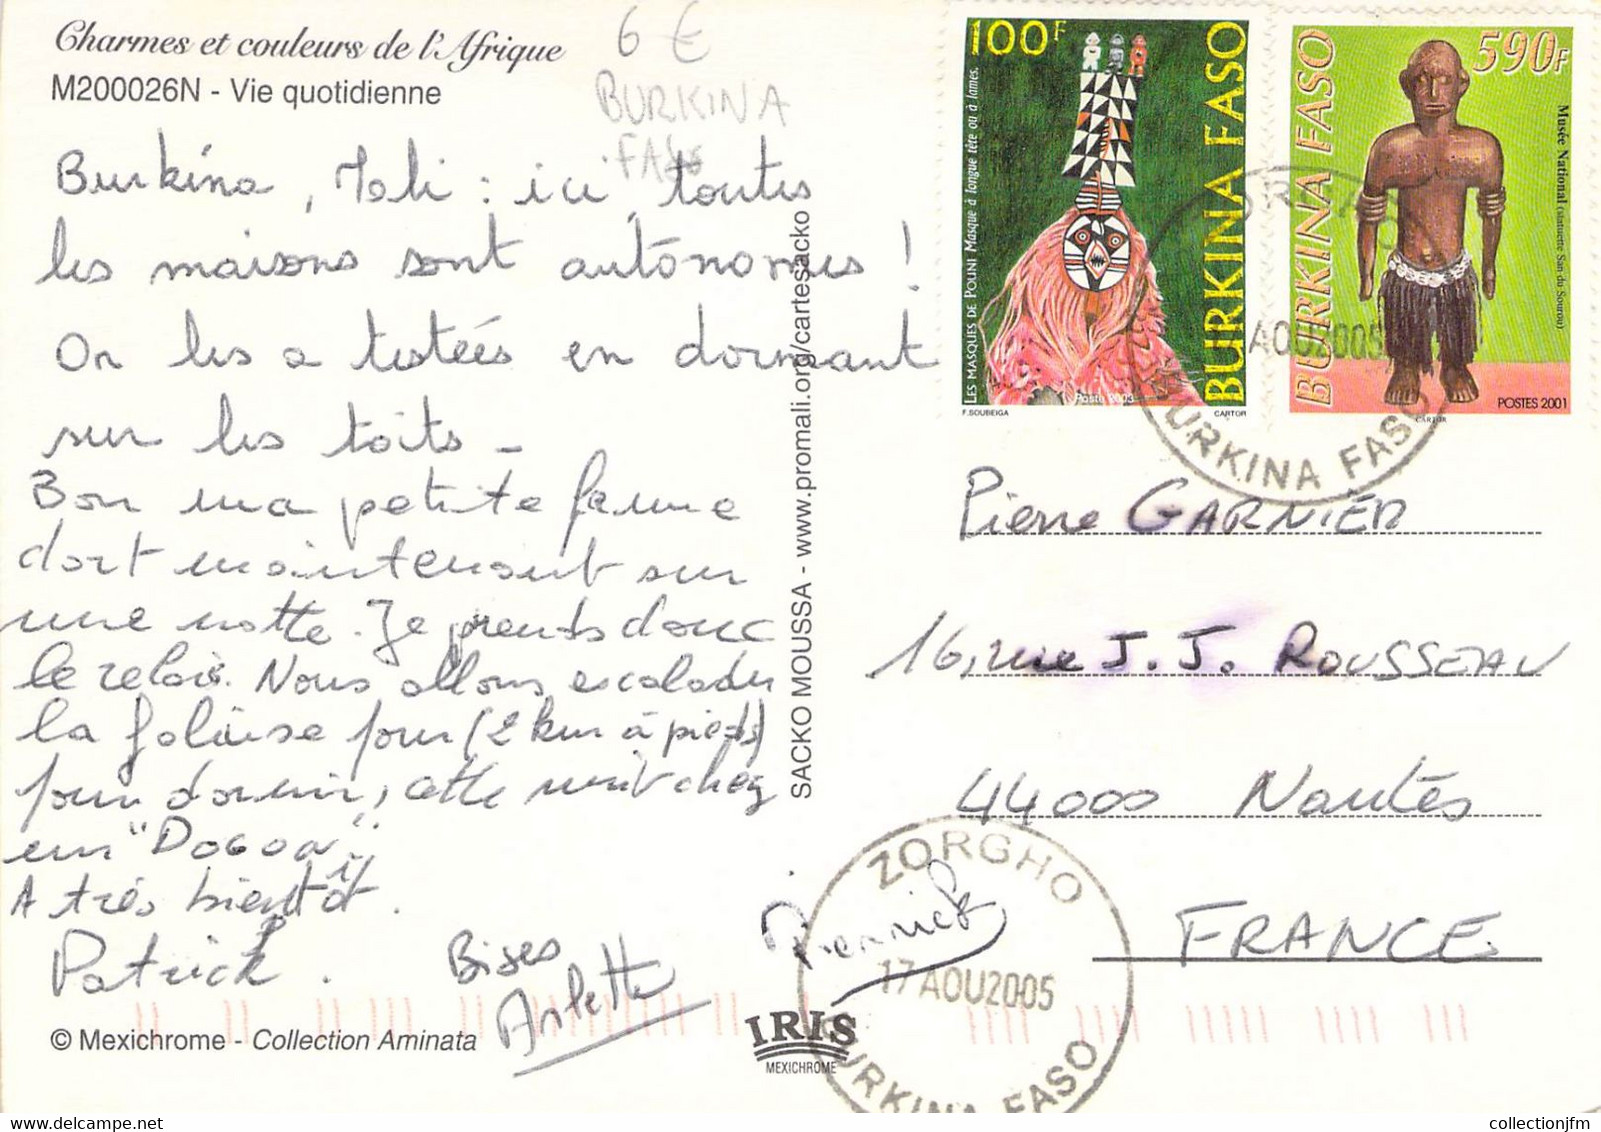 Charmes et couleurs de l'Afrique
M200026N - Vie quotidienne
6 €
BURKINA
FASO
Burkina, Mali : ici, toutes
les maisons sont autonomes !
On les a testées en dormant
sur les toits -
Bon ma petite femme
dort maintenant sur
une natte. Je prends donc
le relais. Nous allons escalader
la falaise pour (2 km à pieds)
pour dormir, cette nuit chez
un "Dogon".
A très bientôt.
Patrick.
Bises
Arlette
Pierrick
© Mexichrome - Collection Aminata
SACKO MOUSSA - www.promali.org/cartesacko
IRIS
MEXICHROME
100F
BURKINA FASO
LES MASQUES DE POUNI Masque à longue tête ou à lames.
Poste 2003
F.SOUBEIGA
CARTOR
590F
BURKINA FASO
Musée National (statuette San du Sourou)
POSTES 2001
CARTOR
AOU2005
BURKINA FASO
Pierre GARNIER
16, rue J. J. ROUSSEAU
44000 Nantes
FRANCE
ZORGHO
17 AOU2005
BURKINA FASO
collectionjfm